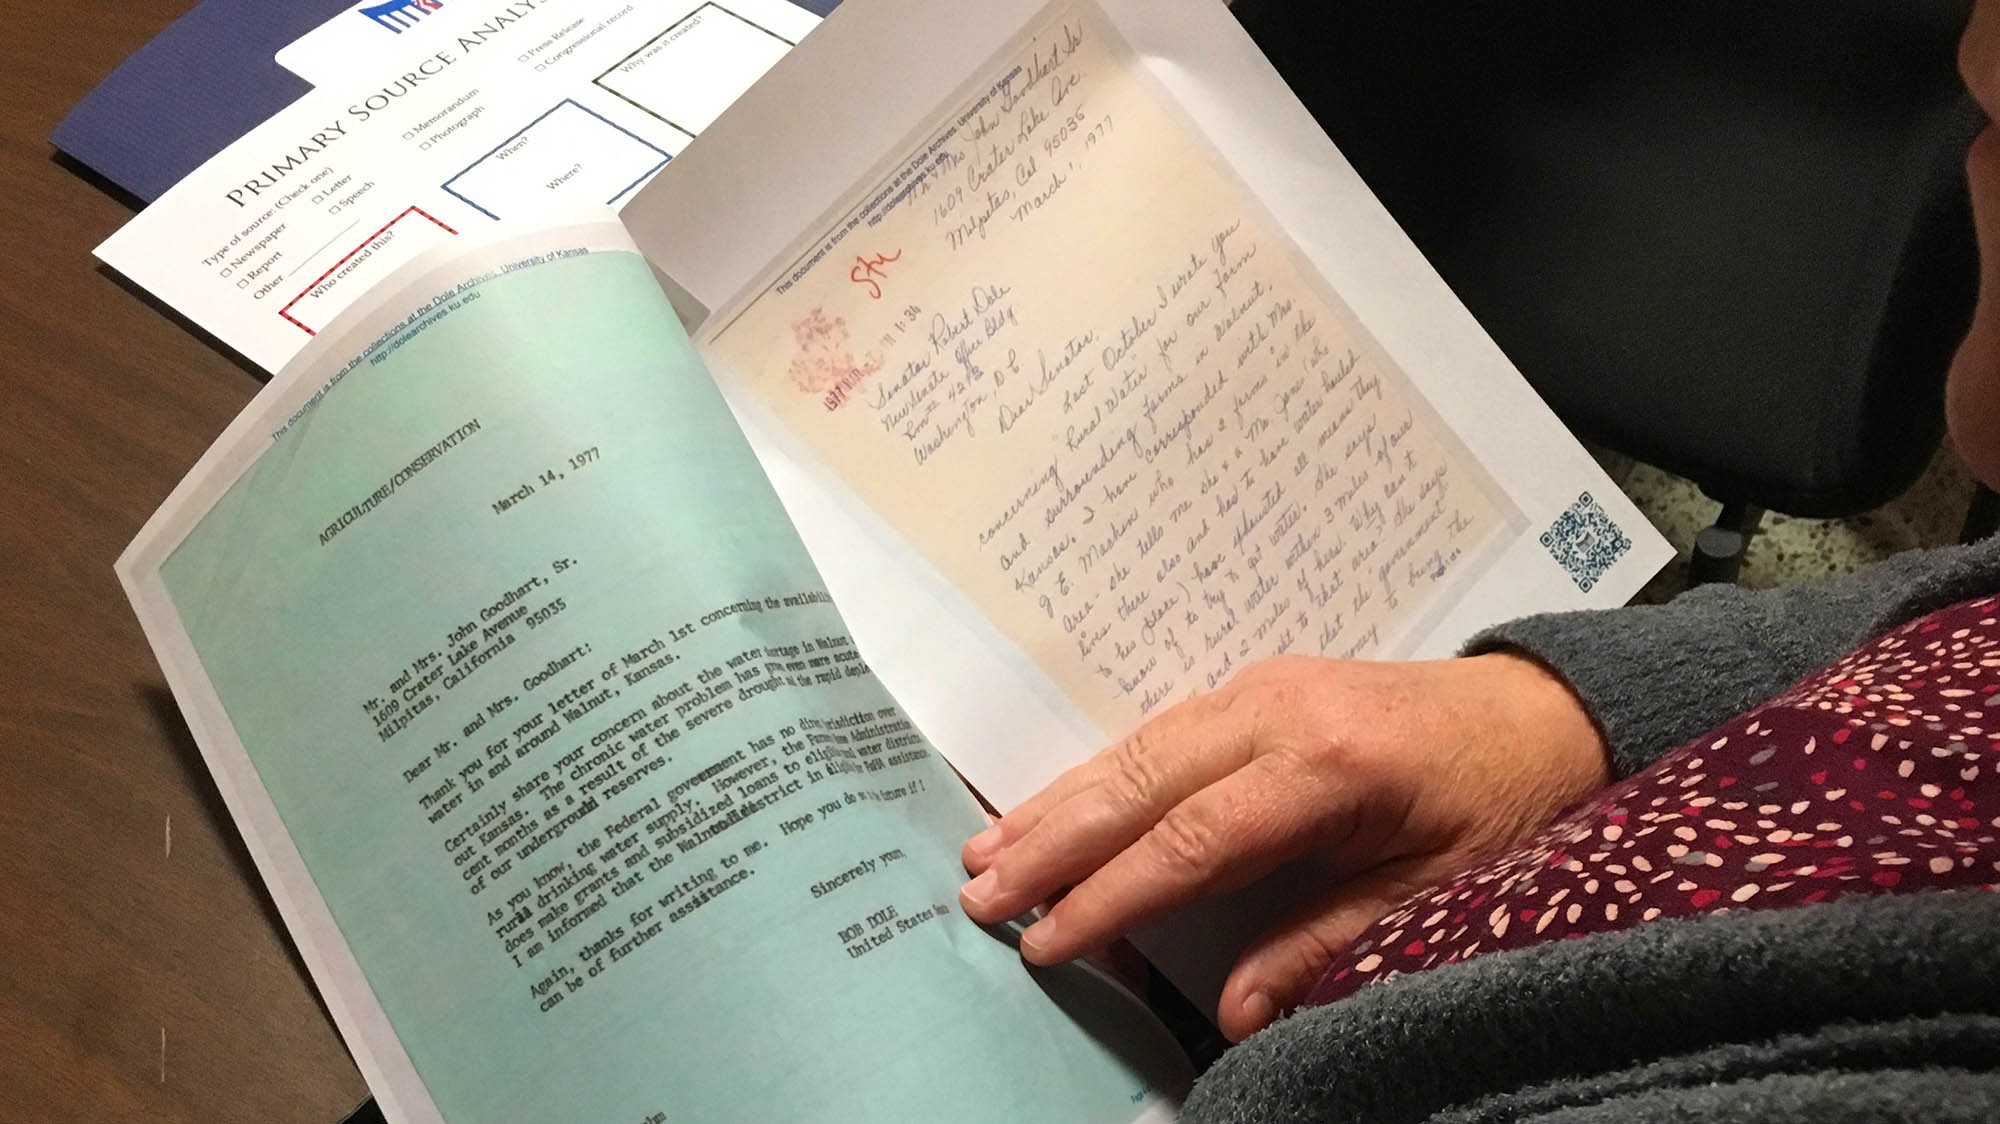 PRIMARY SOURCE ANALYS
Type of source: (Check one)
☐ Newspaper
☐ Letter
☐ Memorandum
☐ Press Release
☐ Report
☐ Speech
☐ Photograph
☐ Congressional record
Other
Who created this?
When?
Where?
Why was it created?
This document is from the collections at the Dole Archives, University of Kansas
http://dolearchives.ku.edu
AGRICULTURE/CONSERVATION
March 14, 1977
Mr. and Mrs. John Goodhart, Sr.
1609 Crater Lake Avenue
Milpitas, California 95035
Dear Mr. and Mrs. Goodhart:
Thank you for your letter of March 1st concerning the availabili
water in and around Walnut, Kansas.
Certainly share your concern about the water shortage in Walnut
out Kansas. The chronic water problem has grown even more acute
cent months as a result of the severe drought and the rapid deple
of our underground reserves.
As you know, the Federal government has no direct jurisdiction over
rural drinking water supply. However, the Farmers Home Administration
does make grants and subsidized loans to eligible rural water districts.
I am informed that the Walnut district is eligible for FmHA assistance.
Again, thanks for writing to me. Hope you do so in the future if I
can be of further assistance.
Sincerely yours,
BOB DOLE
United States Sena
This document is from the collections at the Dole Archives, University of Kansas
http://dolearchives.ku.edu
Mr & Mrs John Goodhart Sr
1609 Crater Lake Ave.
Milpetas, Cal 95035
March 1, 1977
Senator Robert Dole
New Senate Office Bldg
Rm # 4213
Washington, D C
Dear Senator,
Last October I wrote you
concerning "Rural Water" for our farm
and surrounding farms in Walnut,
Kansas. I have corresponded with Mrs.
G E. Macken who has 2 farms in the
area - she tells me she & a Mr. Jones (who
lives there also and has to have water hauled
to his place) have exhausted all means they
know of to try to get water. She says
there is rural water within 3 miles of our
and 2 miles of hers. Why can't
to that area? She says
that the government
money to bring the